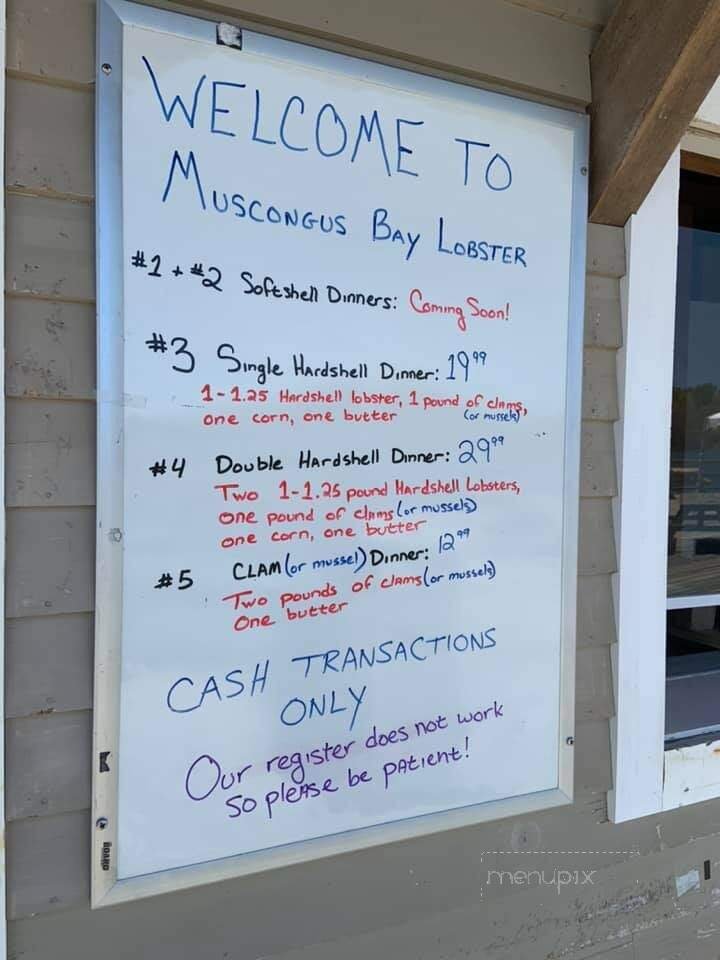 WELCOME TO
MUSCONGUS BAY LOBSTER
#1 + #2 Softshell Dinners: Coming Soon!
#3 Single Hardshell Dinner: 19.99
1-1.25 Hardshell lobster, 1 pound of clams,
one corn, one butter (or mussels)
#4 Double Hardshell Dinner: 29.99
Two 1-1.25 pound Hardshell Lobsters,
one pound of clams (or mussels)
one corn, one butter
#5 CLAM (or mussel) Dinner: 12.99
Two pounds of clams (or mussels)
One butter
CASH TRANSACTIONS
ONLY
Our register does not work
so please be patient!
BOARD
menupix